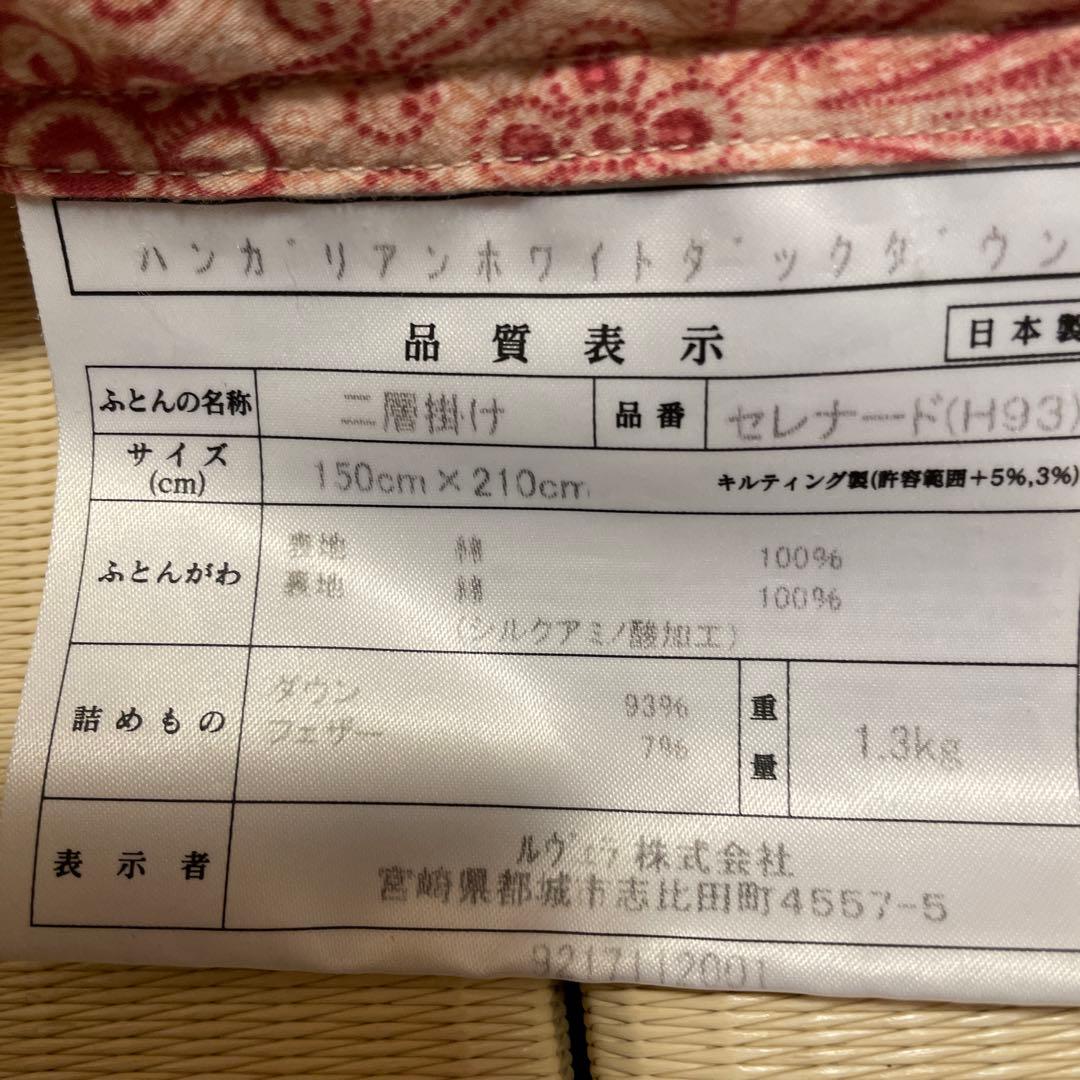 ハンガリアンホワイトダックダウン
品質表示 日本製
ふとんの名称 二層掛け 品番 セレナード(H93)
サイズ(cm) 150cm×210cm キルティング製(許容範囲+5%,3%)
ふとんがわ 表地 綿 100%
裏地 綿 100%
(シルクアミノ酸加工)
詰めもの ダウン 93% 重量 1.3kg
フェザー 7%
表示者 株式会社
宮崎県都城市志比田町4557-5
9217112001